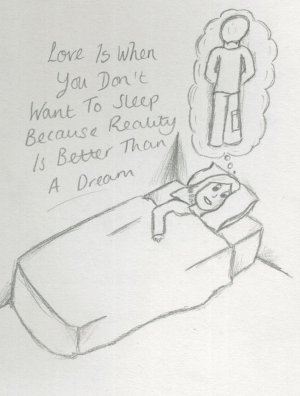 Love Is When
You Don't
Want To Sleep
Because Reality
Is Better Than
A Dream